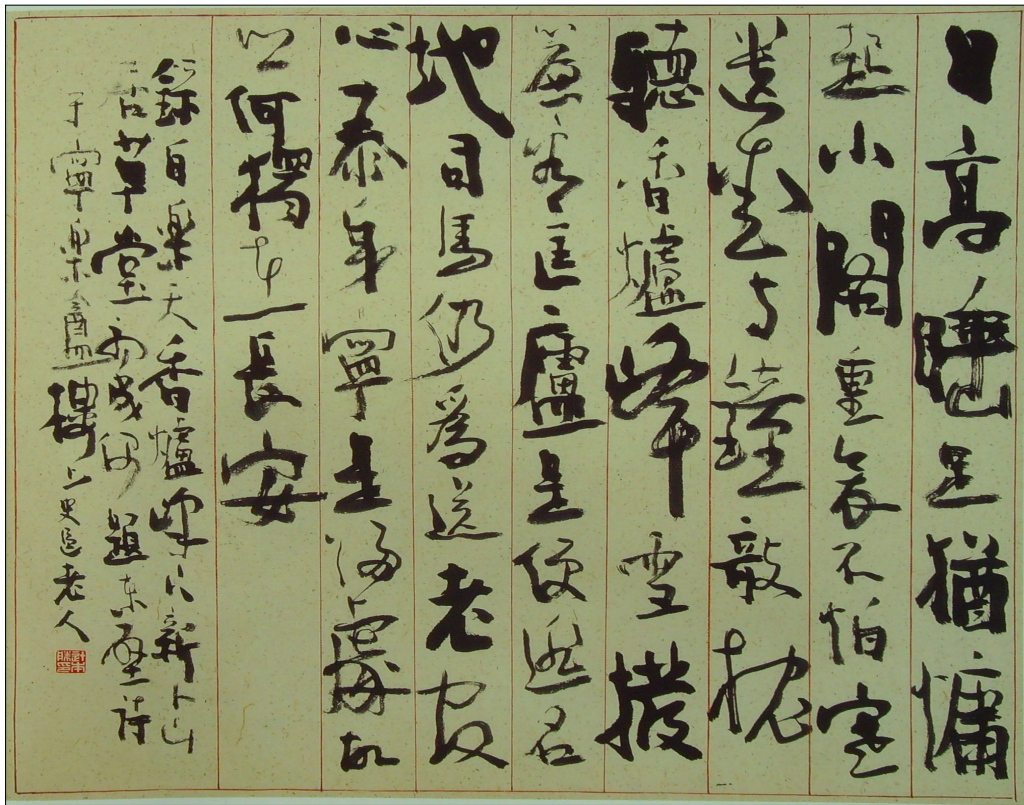 日高睡足猶慵
起小閣重衾不怕寒
遺愛寺鐘敧枕
聽香爐峰雪撥
簾看匡廬是便逃名
地司馬仍為送老官
心泰身寧是歸處故
鄉何獨在長安
錄白樂天香爐峰下新卜山
居草堂初成偶題東壁詩
于寧樂盦樓上史邑老人